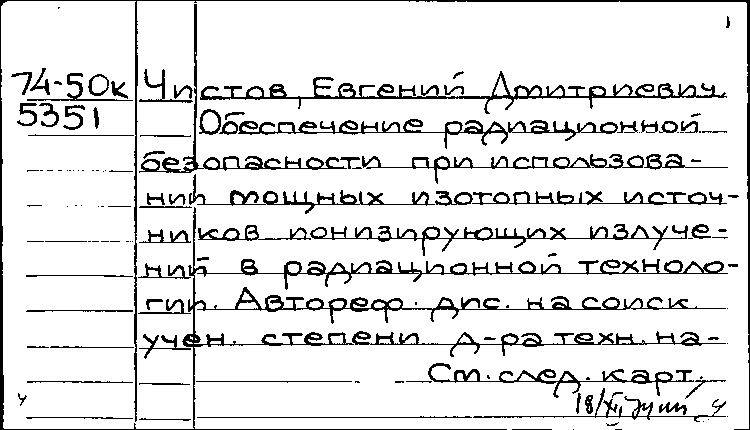 1
74-50к Чистов, Евгений Дмитриевич.
5351 Обеспечение радиационной
безопасности при использова-
нии мощных изотопных источ-
ников ионизирующих излуче-
ний в радиационной техноло-
гии. Автореф. дис. на соиск.
учен. степени д-ра техн. на-
См. след. карт.
ч 18/XII